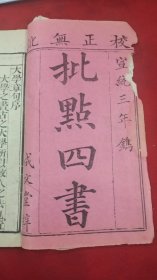 校正無
宣統三年鐫
批點四書
成文堂
大學章句序
大學之書古之大學所以教人之法也